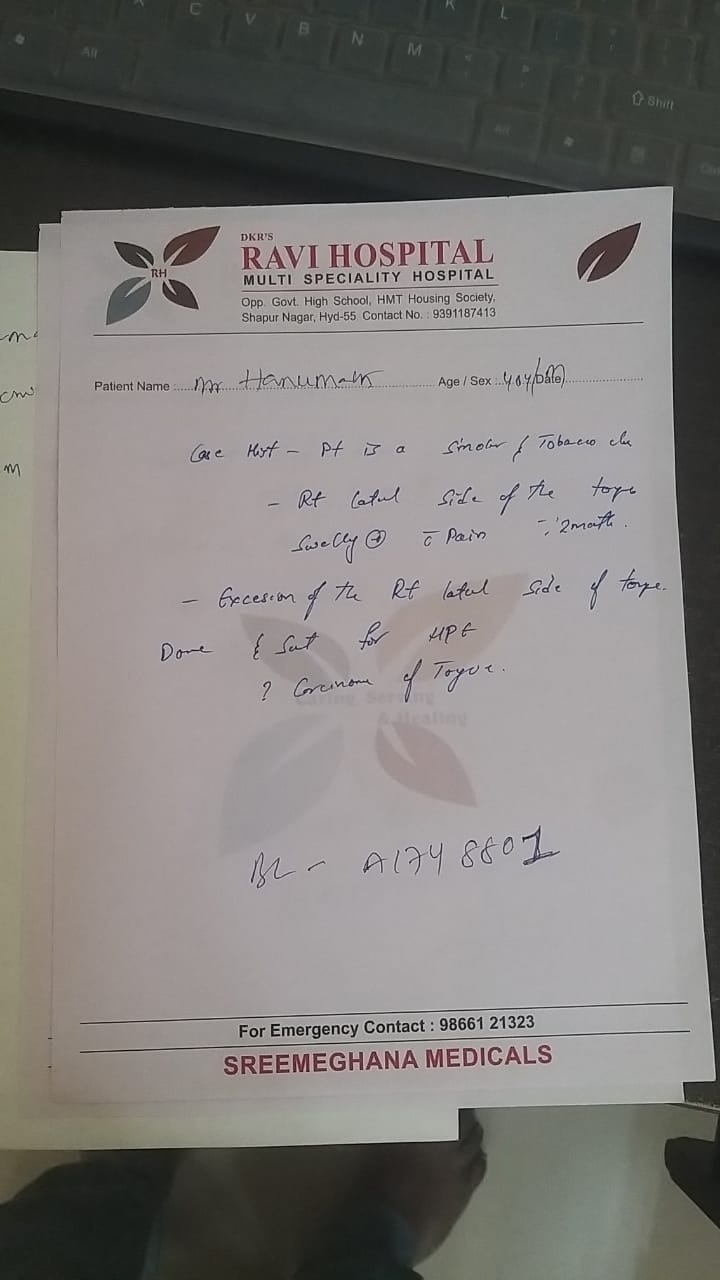 C V B N M K L
Alt
Shift
Alt
RH
DKR'S
RAVI HOSPITAL
MULTI SPECIALITY HOSPITAL
Opp. Govt. High School, HMT Housing Society,
Shapur Nagar, Hyd-55 Contact No. : 9391187413
Patient Name : Mr Hanuman Age / Sex : 40y/M Date
Case Hist - Pt is a Smoker & Tobacco
- Rt latul side of the
Swelly ⊕ c̄ Pain 2 month.
- Excesion of the Rt latul side of
Done & Sent for HPE
? Carcinoma of
Caring Serving
& Healing
BL - A1748801
For Emergency Contact : 98661 21323
SREEMEGHANA MEDICALS
cm
M